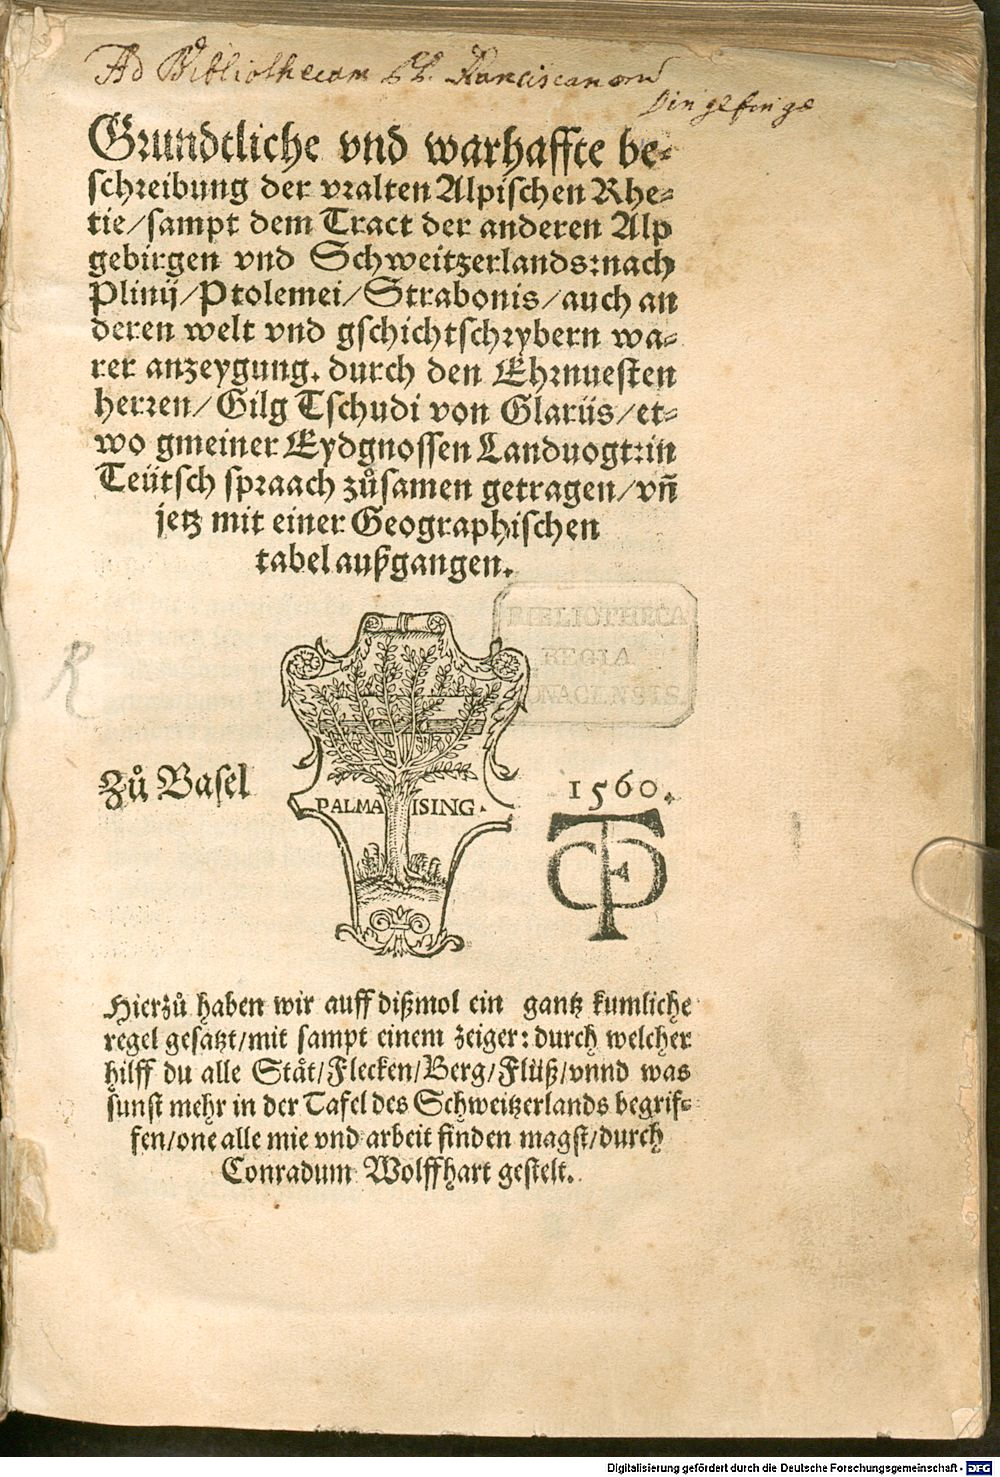 Ad Bibliothecam PP. Franciscanorū
Dingelfinge
Grundtliche vnd warhaffte be⸗
schreibung der vralten Alpischen Rhe⸗
tie/sampt dem Tract der anderen Alp
gebirgen vnd Schweitzerlands:nach
Plinij/Ptolemei/Strabonis/auch an
deren welt vnd gschichtschrybern wa⸗
rer anzeygung. durch den Ehrnuesten
herren/Gilg Tschudi von Glarüs/et⸗
wo gmeiner Eydgnossen Landuogt:in
Teütsch spraach zůsamen getragen/vñ
jetz mit einer Geographischen
tabel außgangen.
BIBLIOTHECA
REGIA
MONACENSIS
R
Zů Basel
PALMA ISING.
1560.
Hierzů haben wir auff dißmol ein gantz kumliche
regel gesatzt/mit sampt einem zeiger:durch welcher
hilff du alle Stät/Flecken/Berg/Flüß/vnnd was
sunst mehr in der Tafel des Schweitzerlands begrif⸗
fen/one alle mie vnd arbeit finden magst/durch
Conradum Wolffhart gestelt.
Digitalisierung gefördert durch die Deutsche Forschungsgemeinschaft - DFG